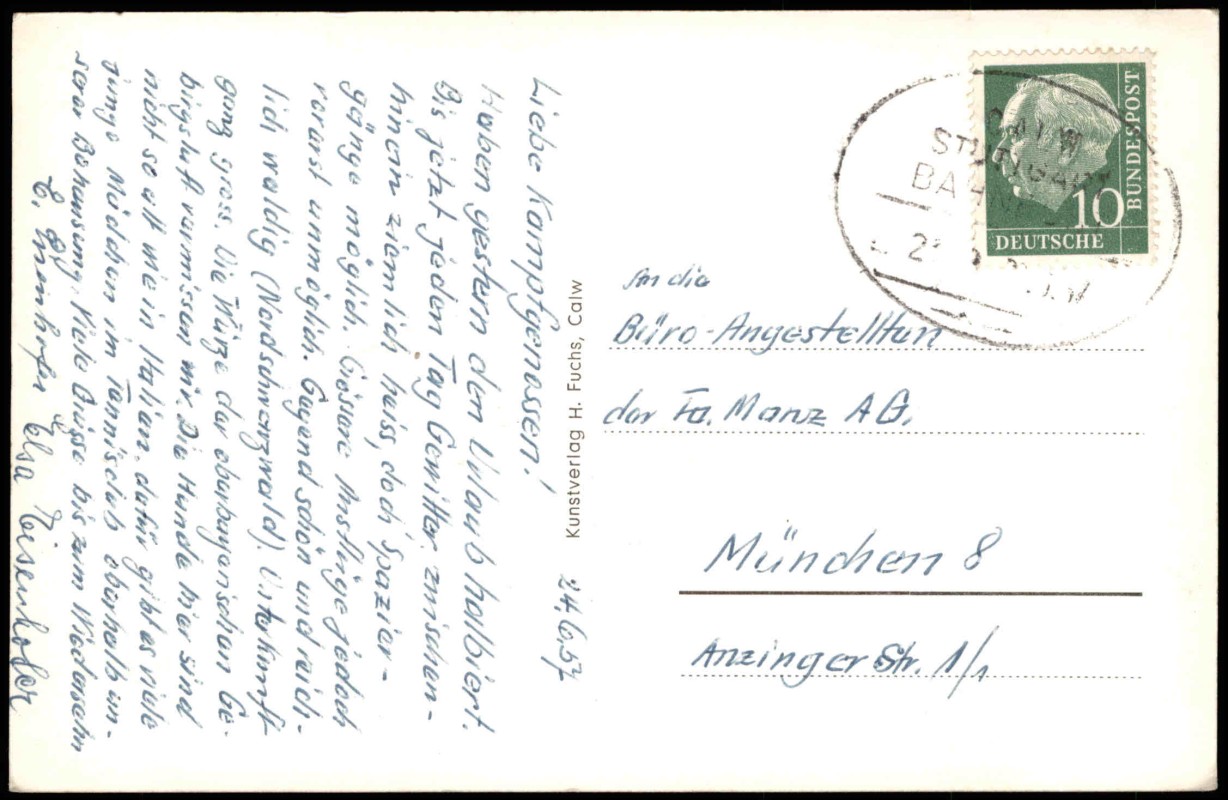 24.6.57
Liebe Kampfgenossen!
Haben gestern den Urlaub halbiert.
Bis jetzt jeden Tag Gewitter, zwischen-
hinein ziemlich heiss, doch Spazier-
gänge möglich. Grössere Anstiege jedoch
vorerst unmöglich. Gegend schön und reich-
lich waldig (Nordschwarzwald). Unterkunft
ganz gross. Die Würze der oberbayerischen Ge-
birgsluft vermissen wir. Die Hunde hier sind
nicht so alt wie in Italien, dafür gibt es viele
junge Mädchen im Tennisclub oberhalb un-
serer Behausung. Viele Grüsse bis zum Wiedersehn
E.
Elsa Eisenhofer
Kunstverlag H. Fuchs, Calw
DEUTSCHE
BUNDESPOST
10
CALW
STUTTGART
An die
Büro-Angestellten
der Fa. Manz AG.
München 8
Anzinger Str. 1/1